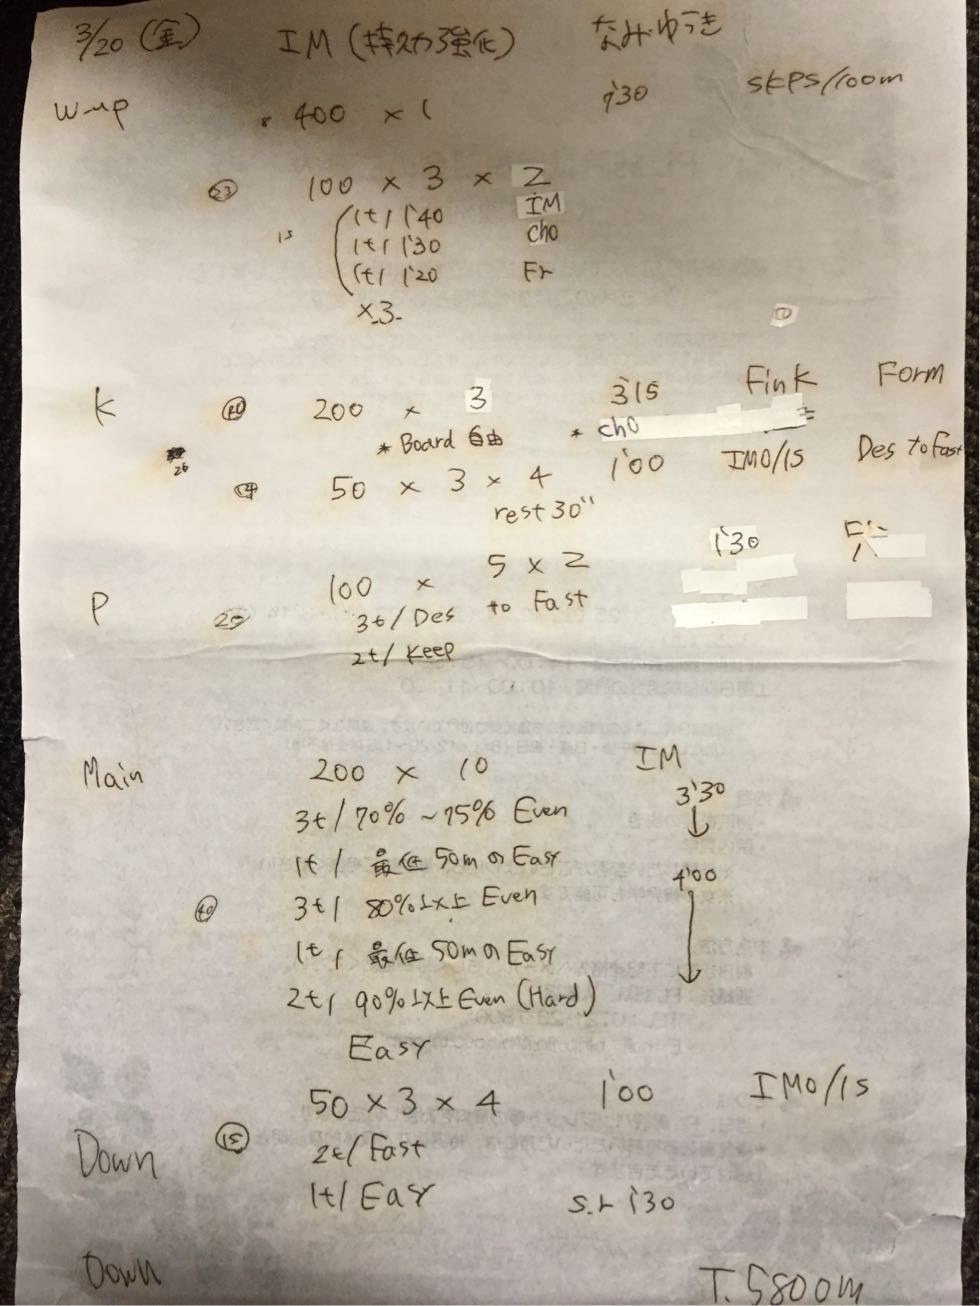 3/20 (金) IM (持久力強化) なみ・ゆうき
W-up 400 × 1 1'30 SKPS/100m
23 100 × 3 × 2
1t/ 1'40 IM
1s 1t/ 1'30 cho
1t/ 1'20 Fr
×3
K 200 × 3 3'15 Fink Form
* Board 自由 * cho
50 × 3 × 4 1'00 IMO/1S Des to Fast
rest 30"
P 100 × 5 × 2 1'30
3t/ Des to Fast
2t/ Keep
Main 200 × 10 IM
3t/ 70% ~ 75% Even 3'30
1t/ 最低 50m の Easy 4'00
40 3t/ 80%以上 Even
1t/ 最低 50m の Easy
2t/ 90%以上 Even (Hard)
Easy
50 × 3 × 4 1'00 IMO/1S
Down 15 2t/ Fast
1t/ Easy s.r 1'30
Down T. 5800m